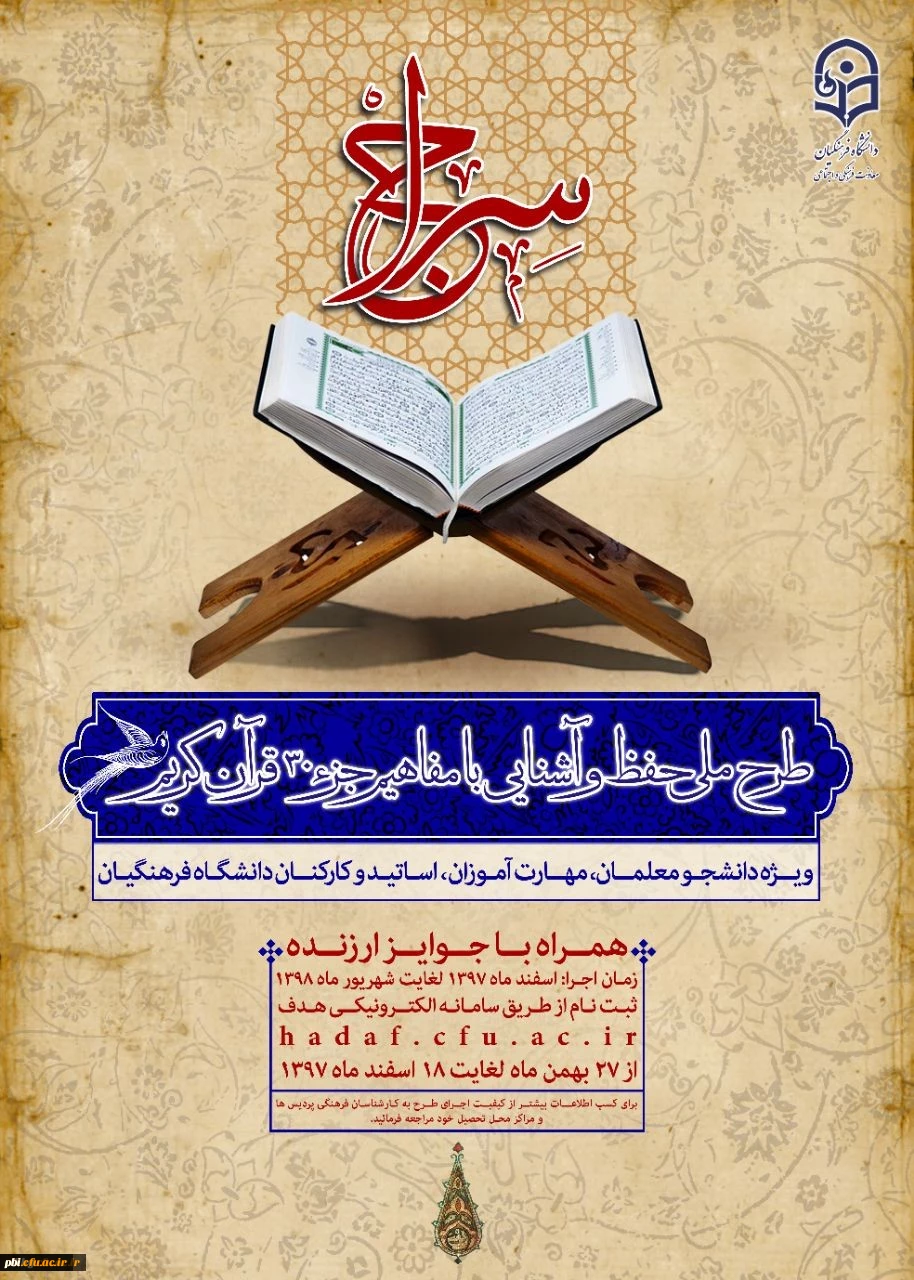 سِراج
دانشگاه فرهنگیان
معاونت فرهنگی و اجتماعی
طرح ملی حفظ و آشنایی با مفاهیم جزء ۳۰ قرآن کریم
ویژه دانشجو معلمان، مهارت آموزان، اساتید و کارکنان دانشگاه فرهنگیان
همراه با جوایز ارزنده
زمان اجرا: اسفند ماه ۱۳۹۷ لغایت شهریور ماه ۱۳۹۸
ثبت نام از طریق سامانه الکترونیکی هدف
hadaf.cfu.ac.ir
از ۲۷ بهمن ماه لغایت ۱۸ اسفند ماه ۱۳۹۷
برای کسب اطلاعات بیشتر از کیفیت اجرای طرح به کارشناسان فرهنگی پردیس ها
و مراکز محل تحصیل خود مراجعه فرمائید.
pbi.cfu.ac.ir